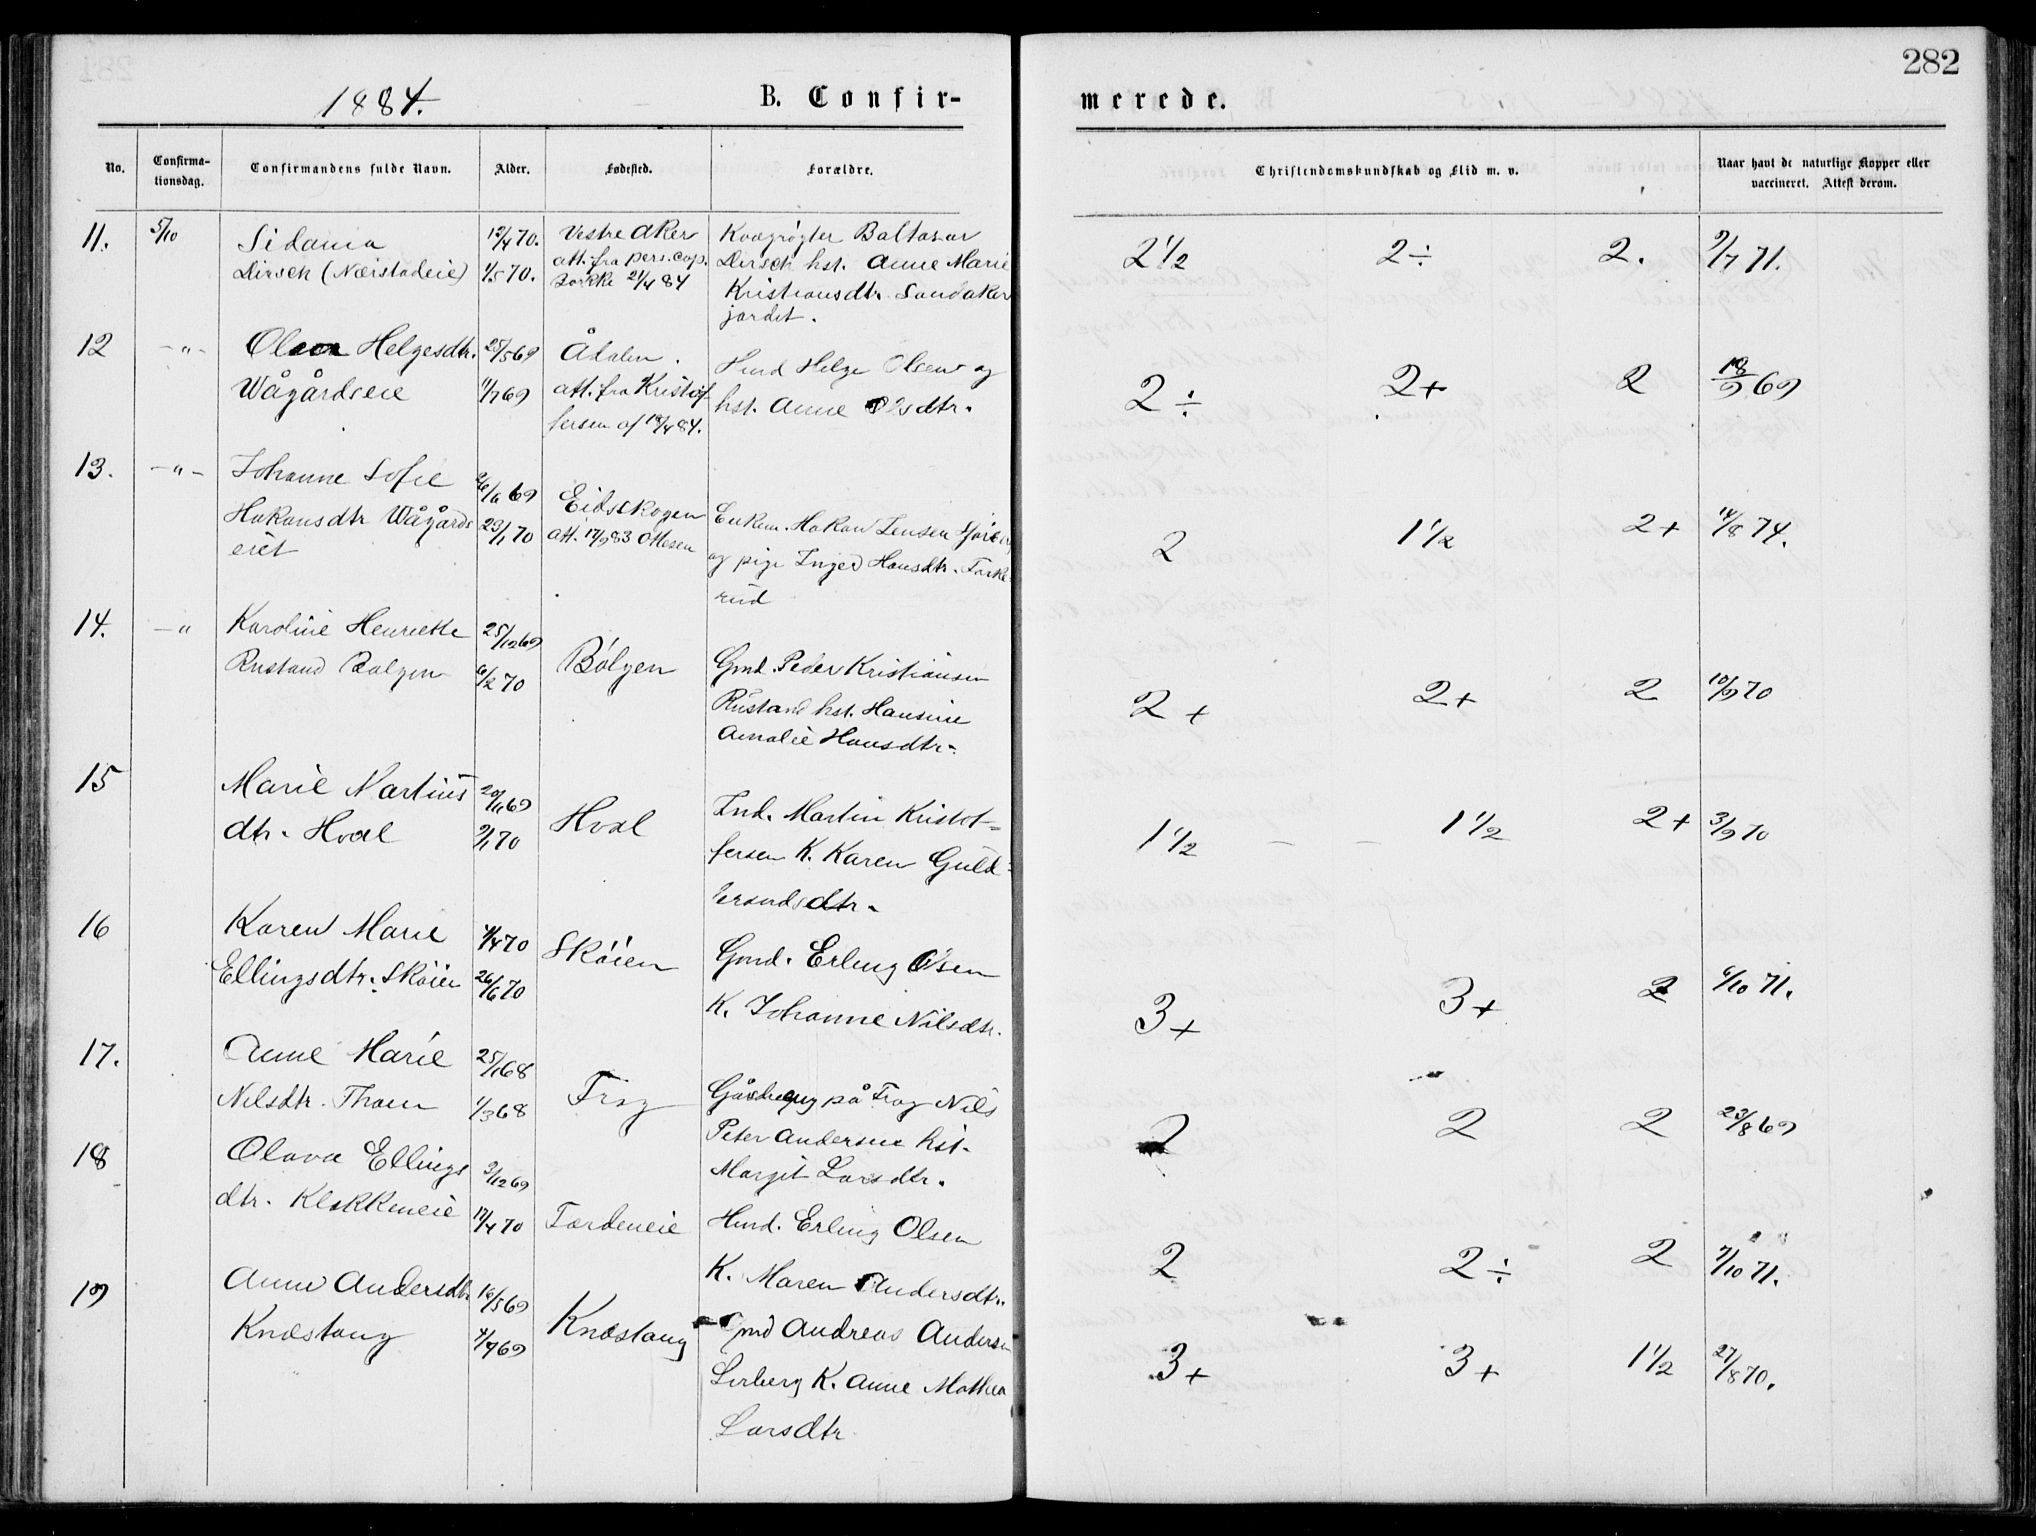 282
1884.
B. Confir-
merede.
No.
Confirma-
tionsdag.
Confirmandens fulde Navn.
Alder.
Fødested.
Forældre.
Christendomskundskab og Flid m. v.
Naar havt de naturlige Kopper eller
vaccineret. Attest derom.
11. 5/10 Sidania 12/4 70. Vestre Aker Kvægrøgter Baltasar
Dirsch (Næistadeie) 1/5 70. att. fra pers. cap. Dirsch hst. Anne Marie
21/4 84 Kristiansdtr. Sandaker
jordet.
2 1/2 2 ÷ 2. 9/7 71.
12 -"- Olea Helgesdtr. 25/5 69 Ådalen. Husd Helge Olsen og
Wågårdseie 11/7 69 att. fra Kristof hst. Anne Olsdtr.
fersen af 18/4 84.
2 ÷ 2+ 2 18/9 69
13. -"- Johanne Sofie 26/11 69 Eidskogen
Hakonsdtr Wågårds 23/1 70 att. 17/9 83 Ottesen Enkem. Hakon Jensen
eiet og pige Inger Hansdtr.
rud
2 1 1/2 2+ 14/8 74.
14. -" Karoline Henriette 25/12 69
Rustand Bølgen 6/2 70 Bølgen Gmd. Peder Kristiansen
Rustand hst. Hansine
Amalie Hansdtr.
2+ 2+ 2 10/9 70
15 Marie Martins 20/11 69
dtr. Hval 9/1 70 Hval Ind. Martin Kristof-
fersen K. Karen Guld-
brandsdtr.
1 1/2 - - 1 1/2 2+ 3/9 70
16 Karen Marie 4/4 70 Skøien Gmd. Erling Olsen
Ellingsdtr. Skøien 26/6 70
K. Johanne Nilsdtr.
3+ 3+ 2 6/10 71.
17. Anne Marie 25/1 68
Nilsdtr. Thoen 1/3 68 Frog Gårdbrug på Frog Nils
Peter Andersen hst.
Margit Larsdtr.
2 2 2 23/8 69
18 Olava Ellings 3/12 69
dtr. Klækkeneie 17/4 70 Færdeneie Husd. Erling Olsen
K. Maren Andersdtr.
2 2 ÷ 2 7/10 71.
19 Anne Andersdtr 16/5 69
Knæstang 4/7 69 Knæstang Gmd Andreas Andersen
Lerberg K. Anne Mathea
Larsdtr
3+ 3+ 1 1/2 27/8 70.